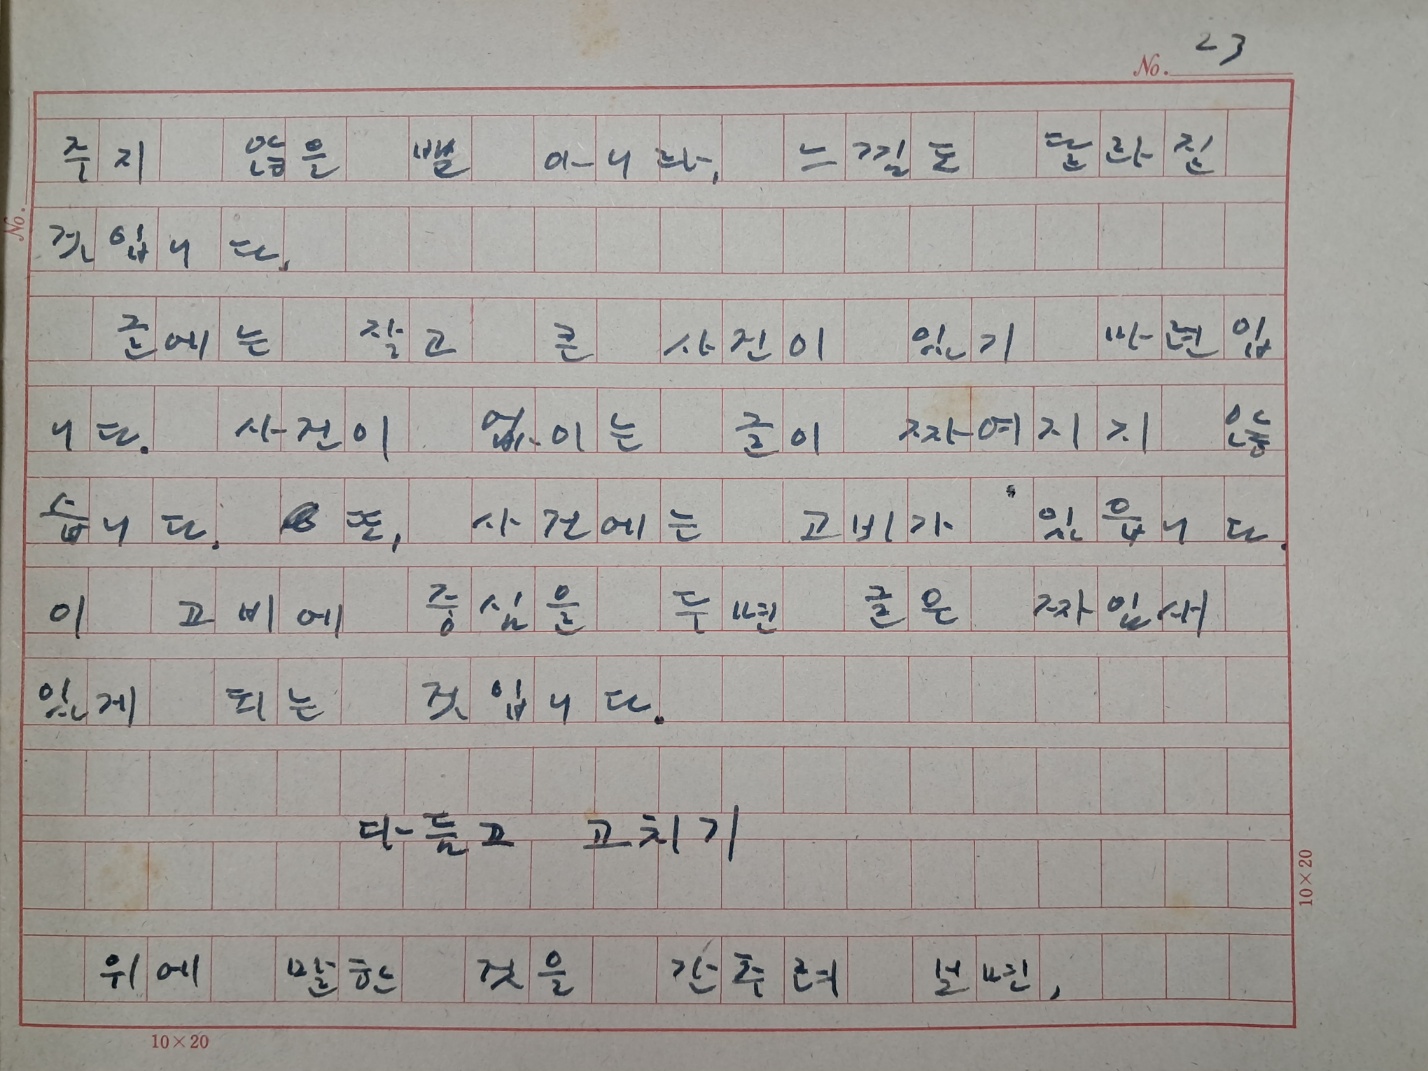 No. 23
주지 않은 뿐 아니라, 느낌도 달라진
것입니다.
글에는 작고 큰 사건이 있기 마련입
니다. 사건이 없이는 글이 짜여지지 않
습니다. 또, 사건에는 고비가 있읍니다.
이 고비에 중심을 두면 글은 짜임새
있게 되는 것입니다.
다듬고 고치기
위에 말한 것을 간추려 보면,
No.
10×20
10×20